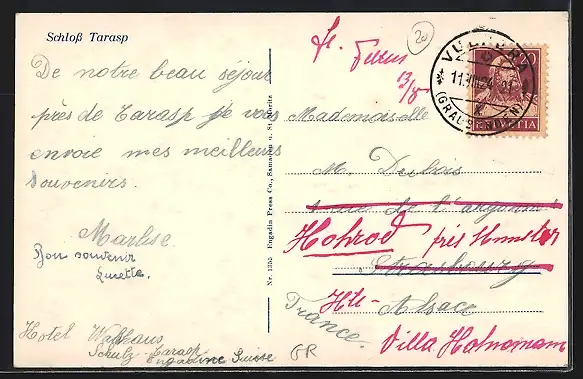 Schloß Tarasp
De notre beau séjour
près de Tarasp je vous
envoie mes meilleurs
souvenirs.
Marlise
Bon souvenir
Lucette.
Hotel Waldhaus
Schulz-Tarasp
Engadine Suisse
GR
Nr. 1355 Engadin Press Co., Samaden u. St. Moritz
20
13/8
VULPERA
(GRAUBÜNDEN)
20
HELVETIA
Mademoiselle
M. Dubois
rue de l'argonne
Hohrod près Munster
Strasbourg
Hte-Alsace
France
Villa Hahnemann